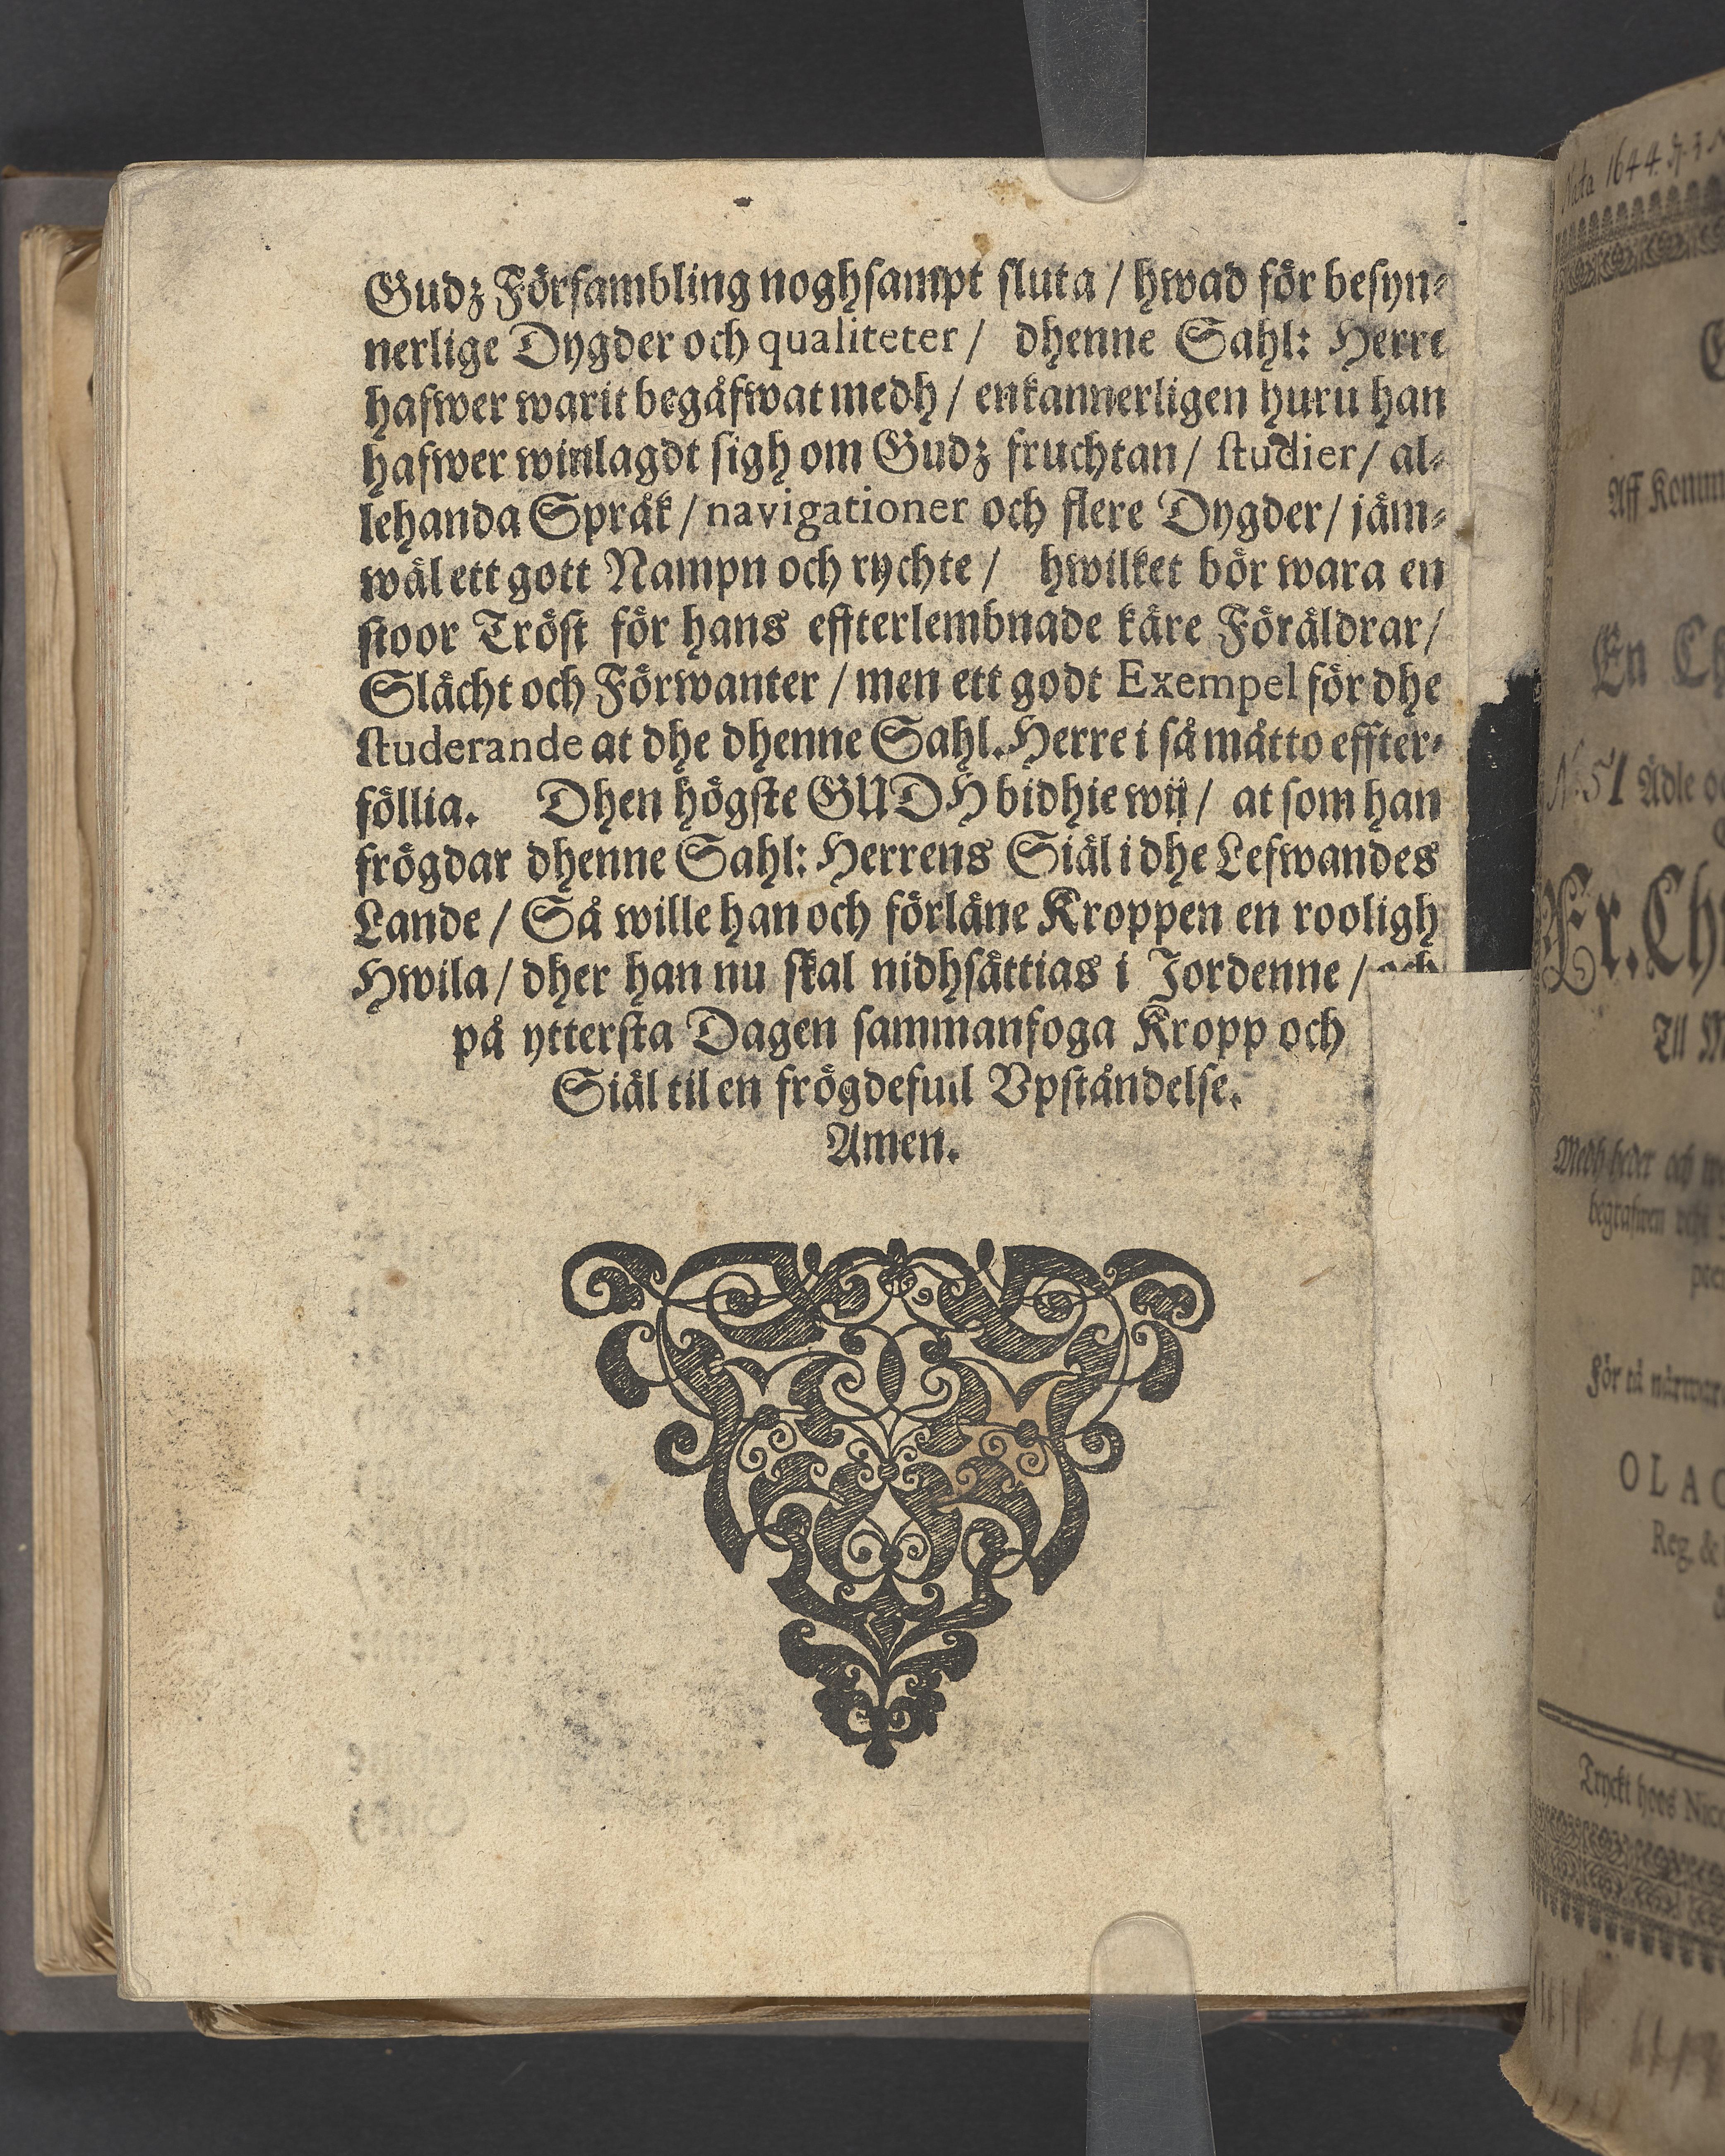 Gudz Försambling noghsampt sluta / hwad för besyn-
nerlige Dygder och qualiteter / dhenne Sahl: Herre
hafwer warit begåfwat medh / enkannerligen huru han
hafwer winlagdt sigh om Gudz fruchtan / studier / al-
lehanda Språk / navigationer och flere Dygder / jäm-
wäl ett gott Nampn och rychte / hwilket bör wara en
stoor Tröst för hans effterlembnade käre Föräldrar /
Slächt och Förwanter / men ett godt Exempel för dhe
studerande at dhe dhenne Sahl. Herre i så måtto effter-
föllia. Dhen högste GUDH bidhie wij / at som han
frögdar dhenne Sahl: Herrens Siäl i dhe Lefwandes
Lande / Så wille han och förläne Kroppen en rooligh
Hwila / dher han nu skal nidhsättias i Jordenne / och
på yttersta Dagen sammanfoga Kropp och
Siäl til en frögdefull Vpståndelse.
Amen.
Nata 1644.
Aff Komm
En Ch
N. 51 Ädle
Fr. Ch
Till M
Medh heder och
begrafwen
För tå närwar
OLAO
Reg. &
Tryckt hoos Nico